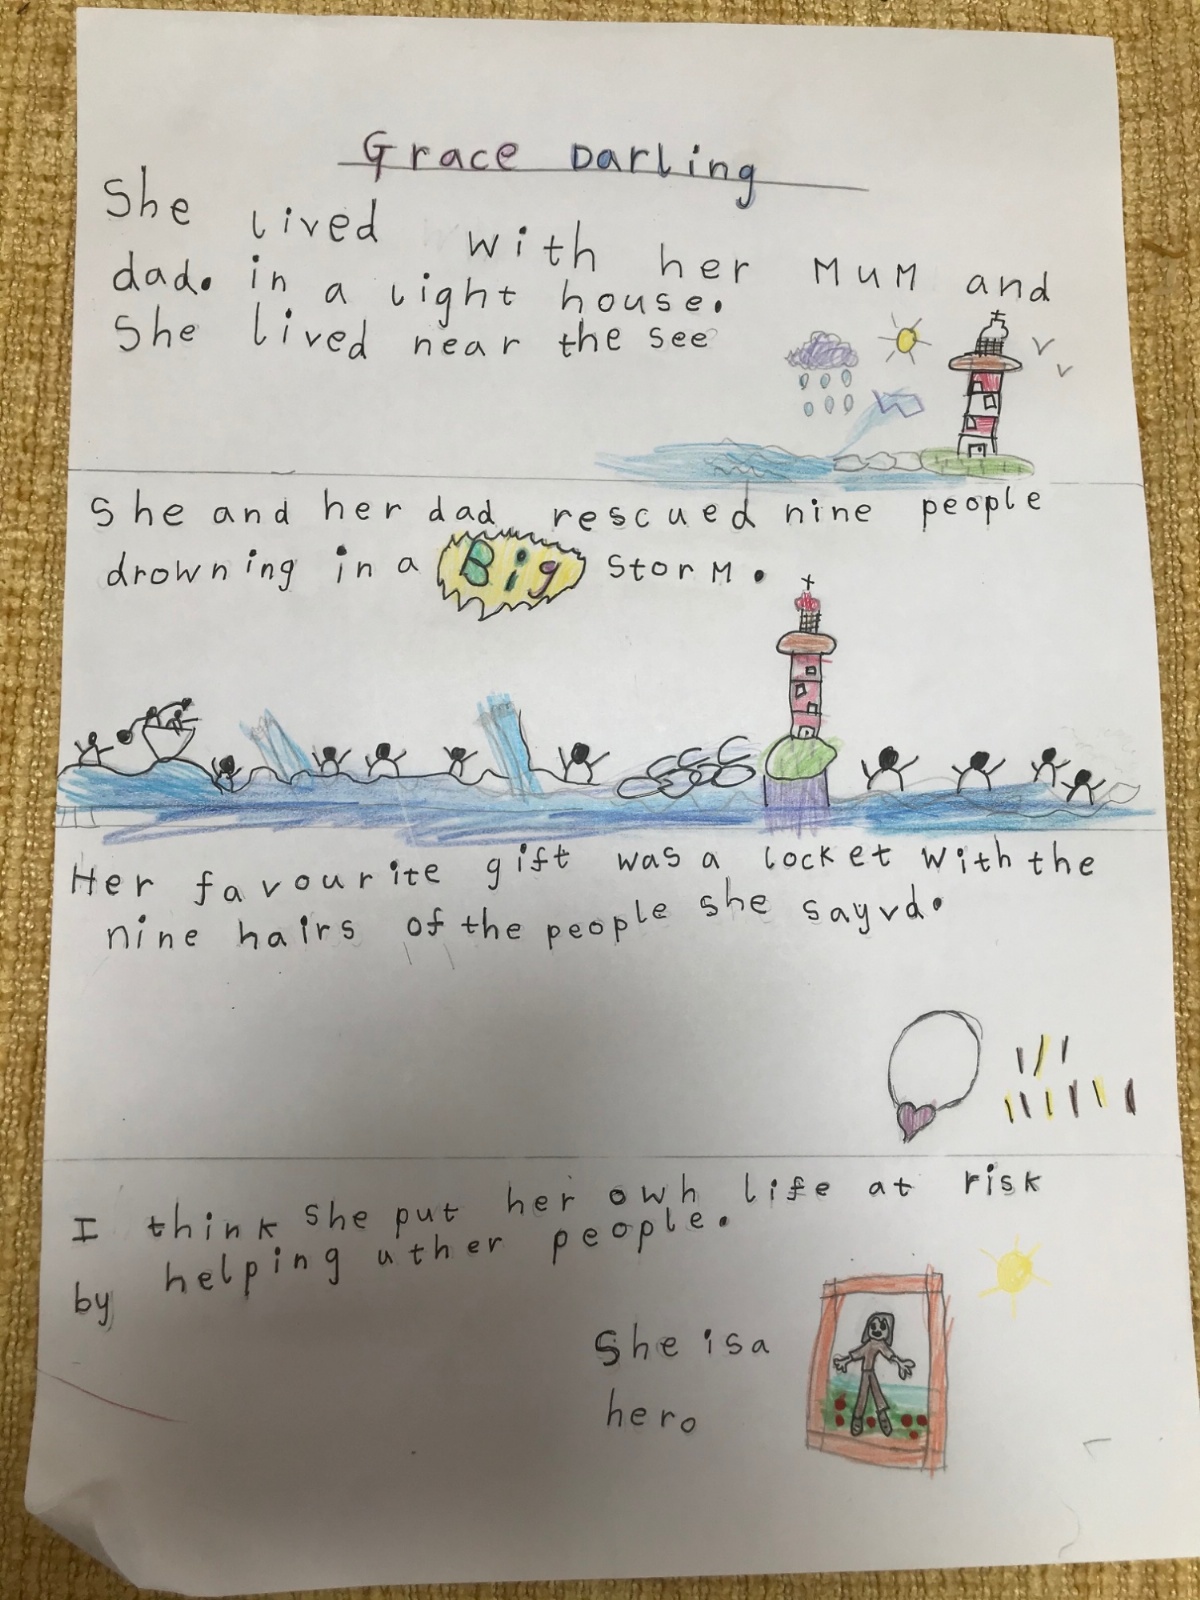 Grace Darling
She lived with her MuM and
dad. in a light house.
She lived near the see
She and her dad rescued nine people
drowning in a Big storM.
Her favourite gift was a locket with the
nine hairs of the people she sayvd.
I think she put her own life at risk
by helping uther people.
She is a
hero